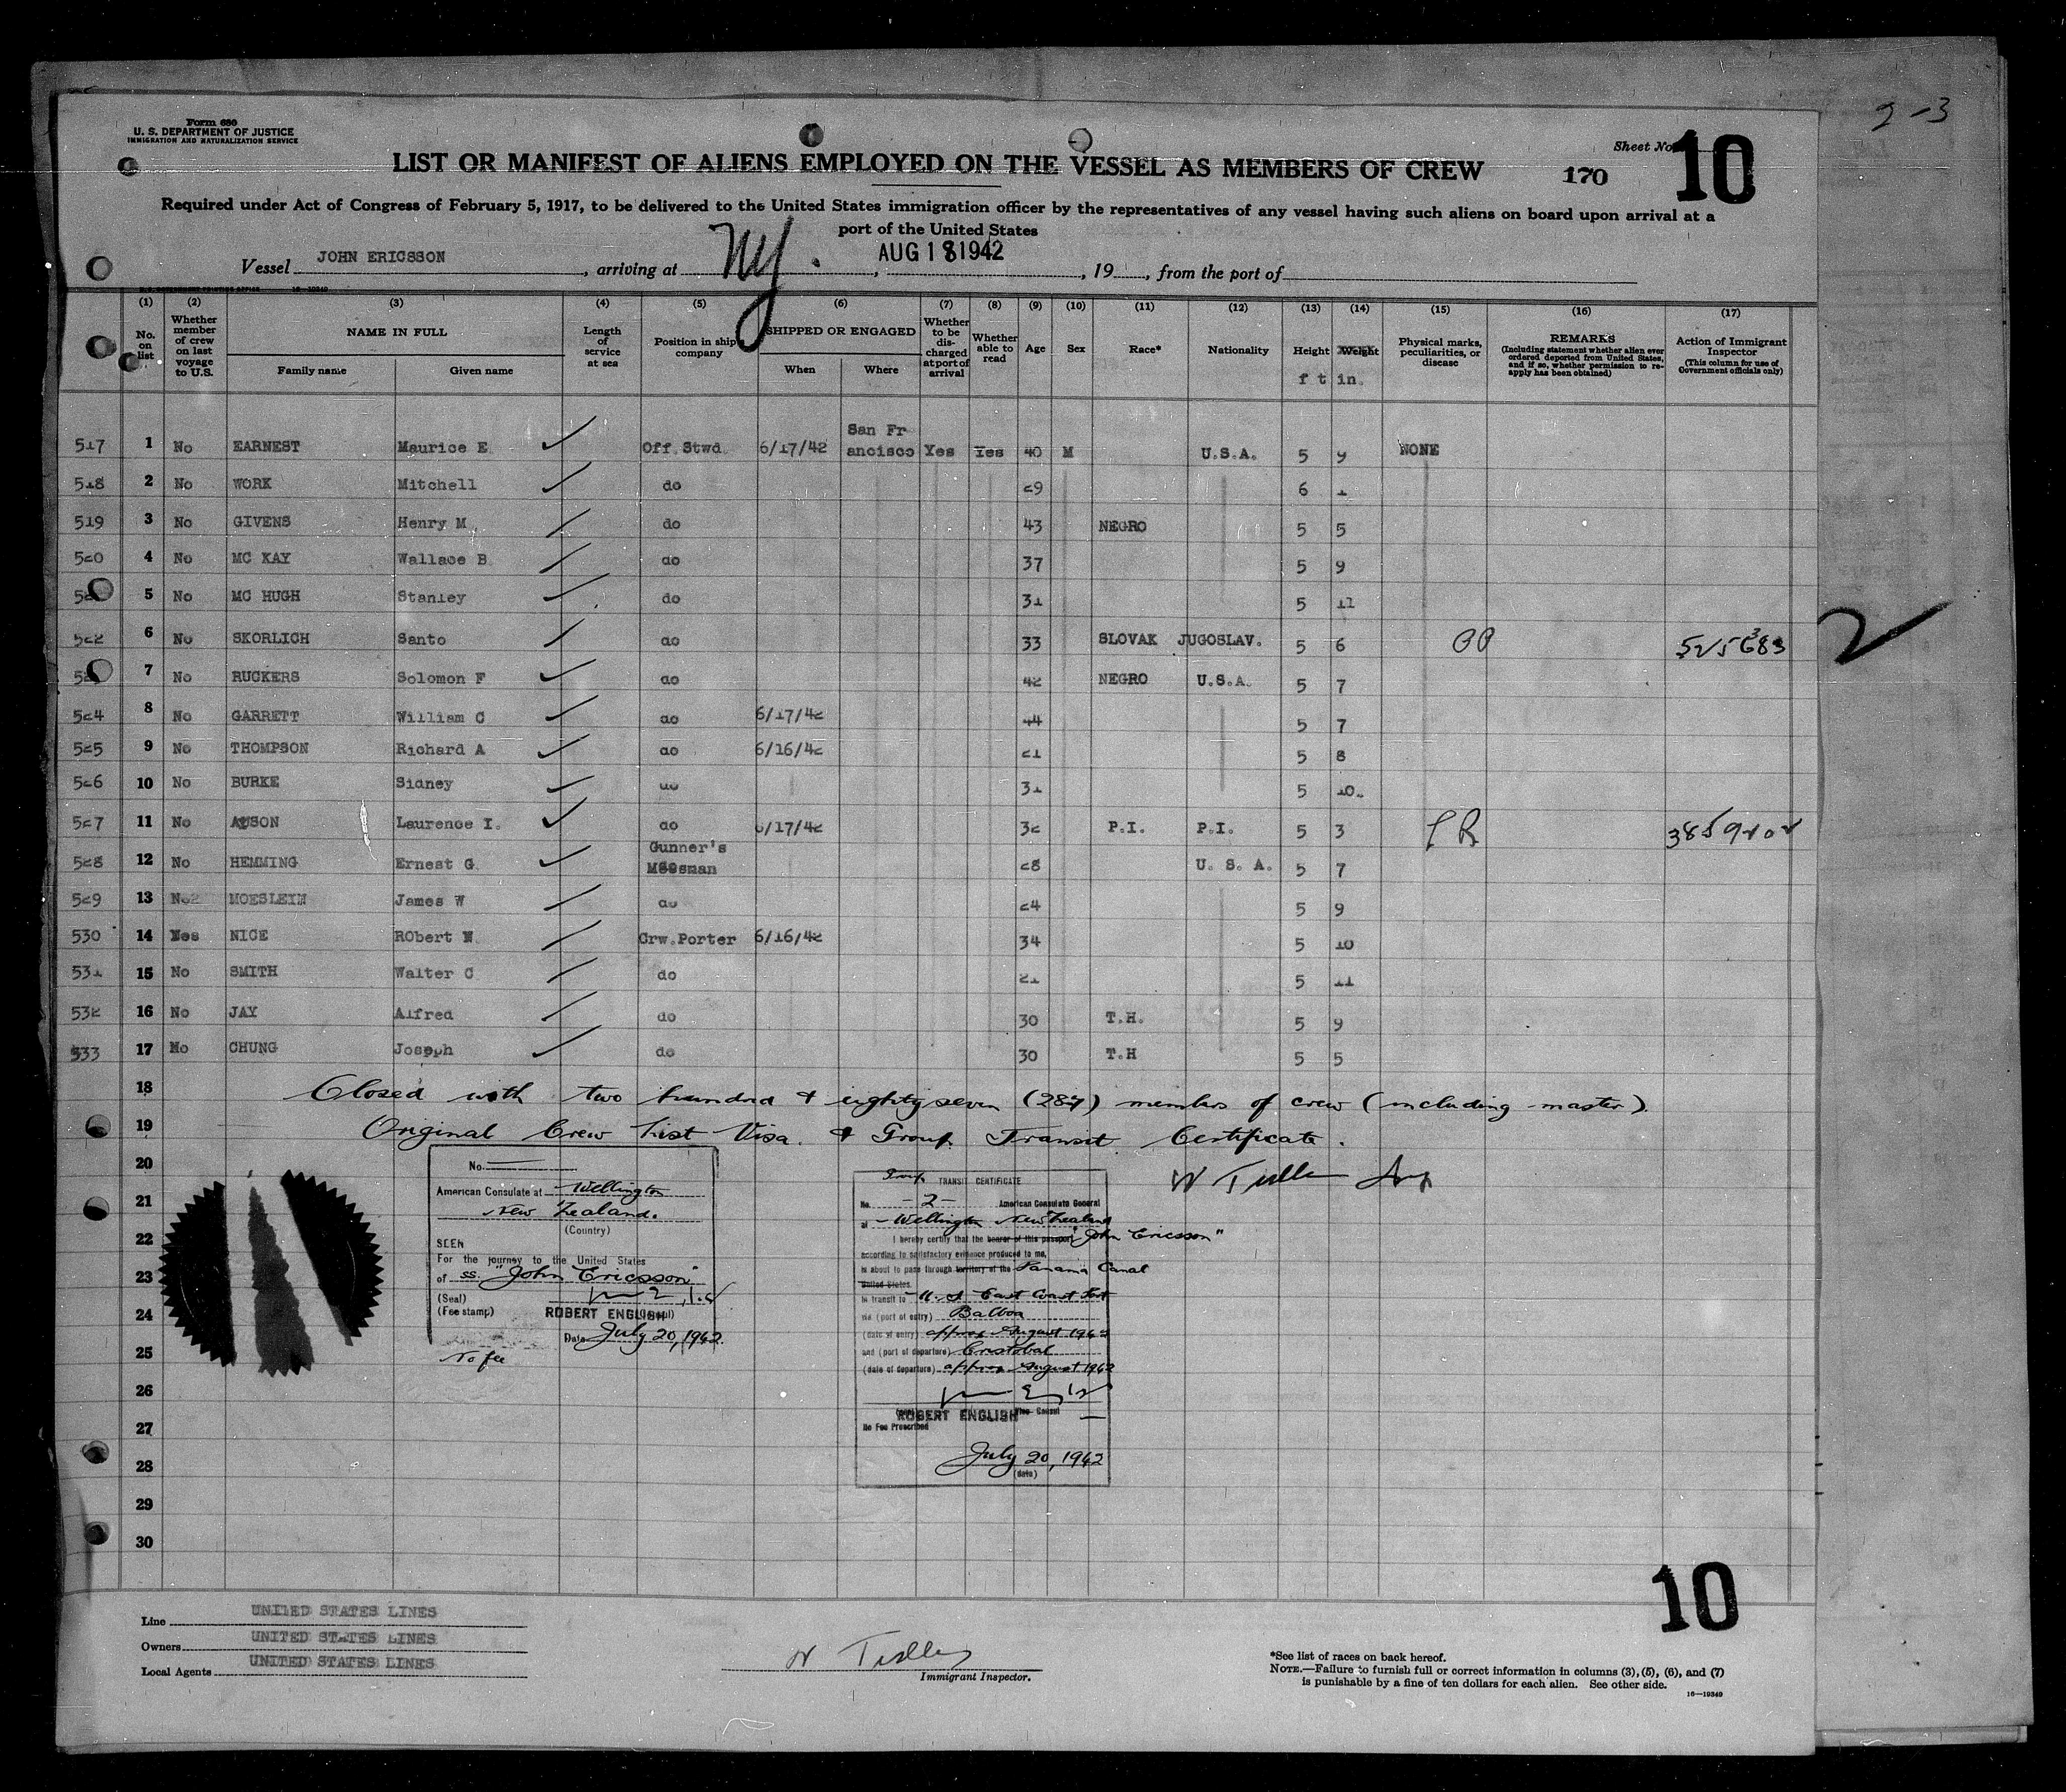 2-3
Form 680
U. S. DEPARTMENT OF JUSTICE
IMMIGRATION AND NATURALIZATION SERVICE
Sheet No. 10
LIST OR MANIFEST OF ALIENS EMPLOYED ON THE VESSEL AS MEMBERS OF CREW 170
Required under Act of Congress of February 5, 1917, to be delivered to the United States immigration officer by the representatives of any vessel having such aliens on board upon arrival at a
port of the United States
Vessel JOHN ERICSSON, arriving at NY., AUG 18 1942, 19, from the port of
(1) (2) (3) (4) (5) (6) (7) (8) (9) (10) (11) (12) (13) (14) (15) (16) (17)
No. on list
Whether member of crew on last voyage to U.S.
NAME IN FULL
Family name Given name
Length of service at sea
Position in ship's company
SHIPPED OR ENGAGED
When Where
Whether to be discharged at port of arrival
Whether able to read
Age Sex Race* Nationality Height Weight
ft in.
Physical marks, peculiarities, or disease
REMARKS
(Including statement whether alien ever ordered deported from United States, and if so, whether permission to re-apply has been obtained)
Action of Immigrant Inspector
(This column for use of Government officials only)
517 1 No EARNEST Maurice E. Off. Stwd. 6/17/42 San Francisco Yes Yes 40 M U.S.A. 5 9 NONE
518 2 No WORK Mitchell do 29 6 1
519 3 No GIVENS Henry M. do 43 NEGRO 5 5
520 4 No MC KAY Wallace B. do 37 5 9
5 No MC HUGH Stanley do 31 5 11
522 6 No SKORLICH Santo do 33 SLOVAK JUGOSLAV. 5 6
2
7 No RUCKERS Solomon F do 42 NEGRO U.S.A. 5 7
524 8 No GARRETT William C do 6/17/42 44 5 7
525 9 No THOMPSON Richard A do 6/16/42 21 5 8
526 10 No BURKE Sidney do 31 5 10.
527 11 No AUSON Laurence I. do 6/17/42 32 P.I. P.I. 5 3
528 12 No HEMMING Ernest G. Gunner's Messman 28 U. S. A. 5 7
529 13 No James W do 24 5 9
530 14 Yes NICE RObert W. Crw.Porter 6/16/42 34 5 10
531 15 No SMITH Walter C do 21 5 11
532 16 No JAY Alfred do 30 T.H. 5 9
533 17 No CHUNG Joseph do 30 T.H 5 5
18 Closed with two hundred & eighty seven (287) members of crew (including master).
19 Original Crew List Visa. & Group Transit Certificate.
20
21
22
23
24
25
26
27
28
29
30
No.
American Consulate at Wellington
New Zealand.
(Country)
SEEN
For the journey to the United States
of ss. "John Ericsson"
(Seal)
(Fee stamp) ROBERT ENGLISH
Date July 20, 1942.
No fee
Group TRANSIT CERTIFICATE
No. -2- American Consulate General
at Wellington New Zealand
I hereby certify that the bearer of this passport "John Ericsson"
according to satisfactory evidence produced to me,
is about to pass through territory of the Panama Canal
United States
in transit to U.S. East Coast Port
via (port of entry) Balboa
(date of entry) approx August 1942
and (port of departure) Cristobal
(date of departure) approx August 1942
ROBERT ENGLISH Vice Consul
No Fee Prescribed
July 20, 1942
(date)
10
Line UNITED STATES LINES
Owners UNITED STATES LINES
Local Agents UNITED STATES LINES
Immigrant Inspector.
*See list of races on back hereof.
NOTE.—Failure to furnish full or correct information in columns (3), (5), (6), and (7)
is punishable by a fine of ten dollars for each alien. See other side.
16—19349